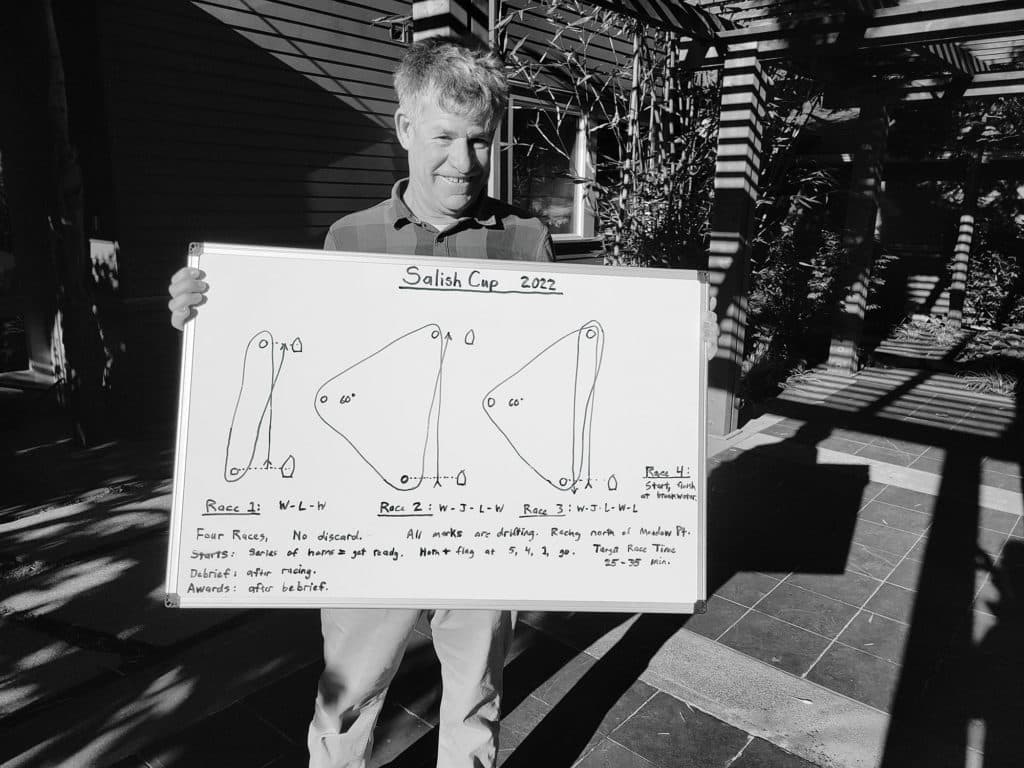 Salish Cup 2022
60°
60°
Race 4:
Start, finish
at breakwater.
Race 1: W-L-W
Race 2: W-J-L-W
Race 3: W-J-L-W-L
Four Races, No discard. All marks are drifting. Racing north of Meadow Pt.
Starts: Series of horns = get ready. Horn + flag at 5, 4, 1, go. Target Race Time
25-35 min.
Debrief: after racing.
Awards: after debrief.